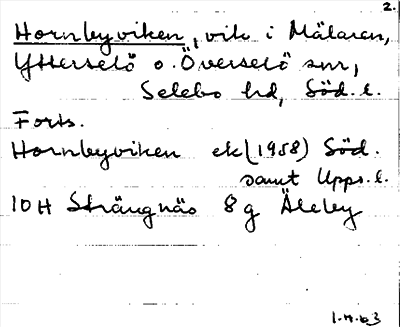 2.
Hornbyviken, vik i Mälaren,
Ytterselö o. Överselö snr,
Selebo hd, Söd. l.
Forts.
Hornbyviken ek (1958) Söd.
samt Upps. l.
10H Strängnäs 8g Åleby